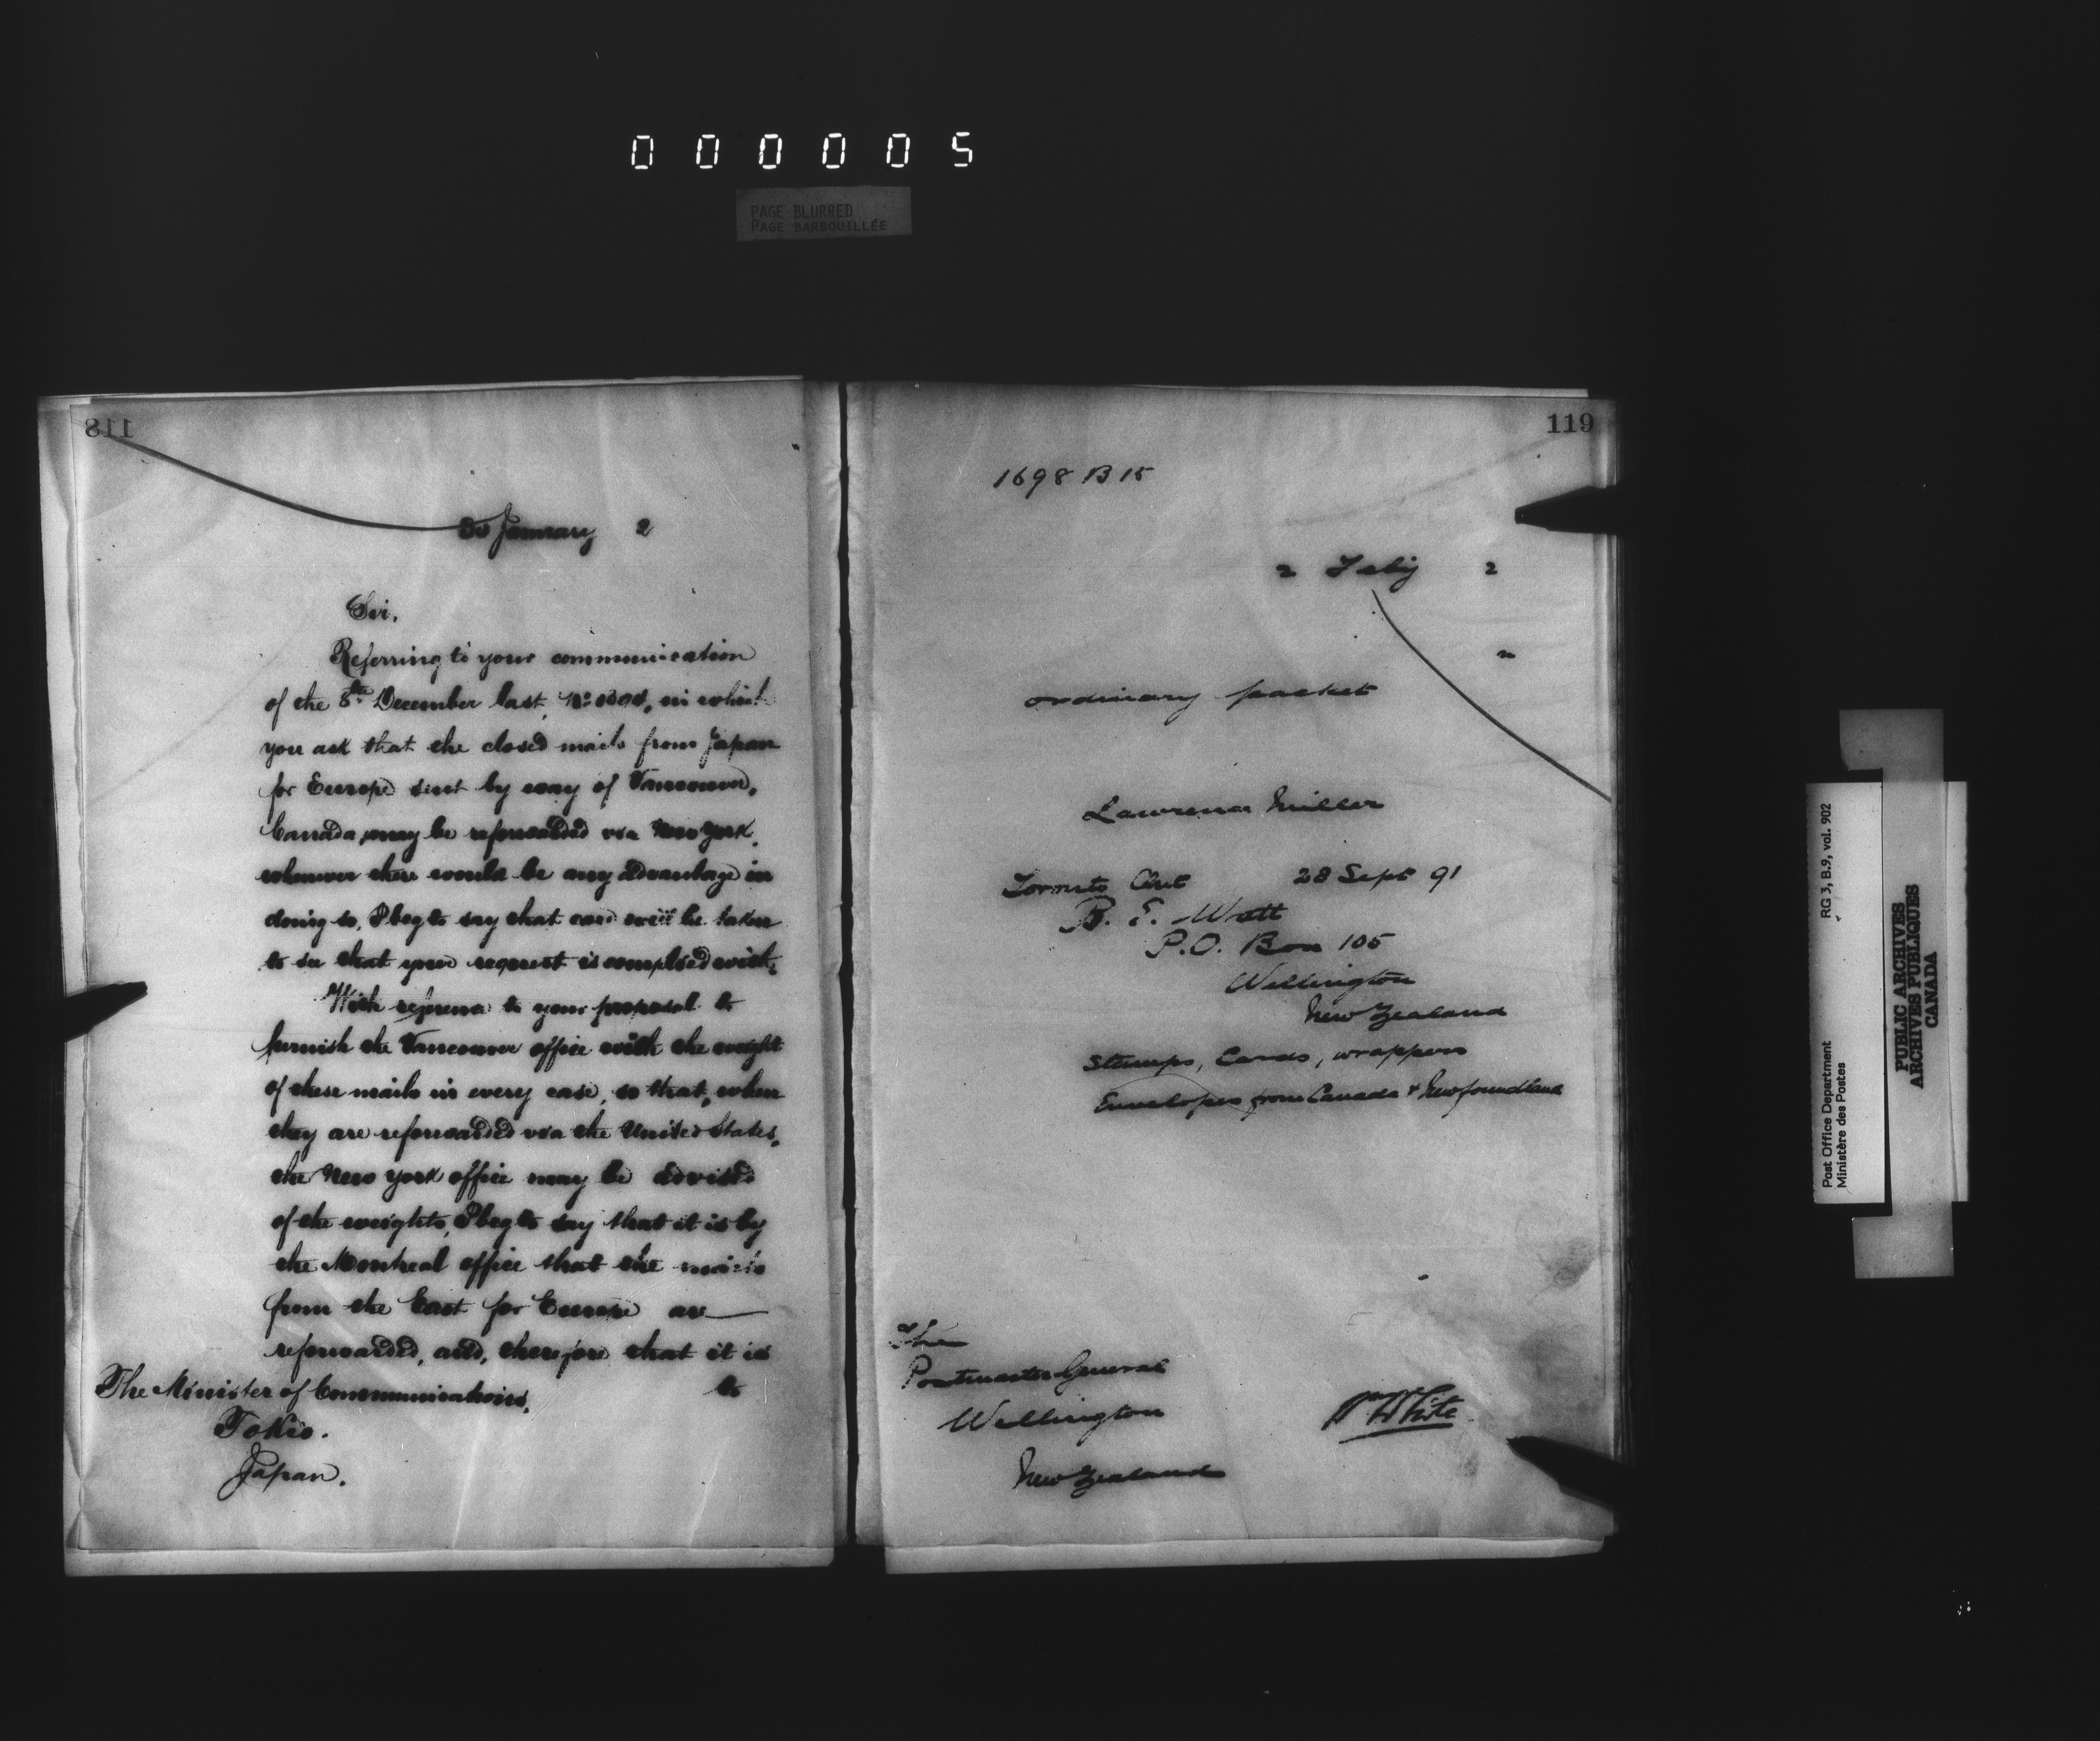 000005
PAGE BLURRED
PAGE BARBOUILLÉE
118
30 January 2
Sir,
Referring to your communication
of the 8th December last, No. in which
you ask that the closed mails from Japan
for Europe sent by way of Vancouver,
Canada, may be reforwarded via New York,
whenever there would be any advantage in
doing so, I beg to say that care will be taken
to see that your request is complied with.
With reference to your proposal to
furnish the Vancouver office with the weight
of these mails in every case, so that, when
they are reforwarded via the United States,
the New York office may be advised
of the weights, I beg to say that it is by
the Montreal office that the mails
from the East for Europe are
reforwarded, and, therefore that it is
to
The Minister of Communications,
Tokio.
Japan.
119
1698 B 15
2 Feby 2
"
ordinary packet
Lawrence Miller
Toronto Ont 28 Sept 91
B. E. Watt
P.O. Box 105
Wellington
New Zealand
Stamps, Cards, wrappers
Envelopes from Canada & Newfoundland
The
Postmaster General
Wellington
New Zealand
White
Post Office Department
Ministère des Postes
RG 3, B.9, vol. 902
PUBLIC ARCHIVES
ARCHIVES PUBLIQUES
CANADA